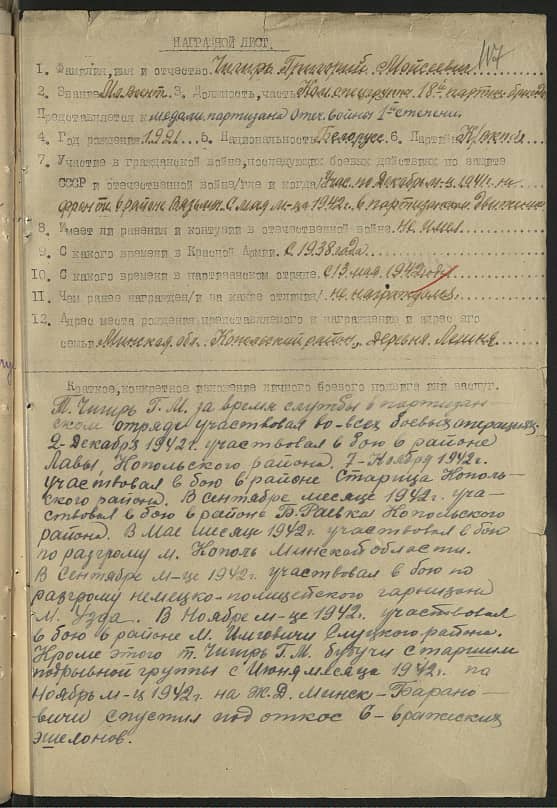 117
НАГРАДНОЙ ЛИСТ.
1. Фамилия, имя и отчество Чигирь Григорий Мойсеевич
2. Звание Мл. Лейт. 3. Должность, часть Ком. спецгруп. 18й партиз. бригады
Представляется к медали партизана Отеч. Войны 1й степени
4. Год рождения 1921. 5. Национальность Белорус. 6. Партийн.
7. Участие в гражданской войне, последующих боевых действиях по защите
СССР и отечественной войне/где и когда/ Учас. по Декабрь м-ц 1941г. на
фронте в район Вязьмы. С мая м-ца 1942г. в партизанском движении
8. Имеет ли ранения и контузии в отечественной войне. не имел.
9. С какого времени в Красной Армии. С 1938 года
10. С какого времени в партизанском отряде. с 13 мая 1942 года
11. Чем ранее награжден/и за какие отличия/. не награждался.
12. Адрес места рождения представляемого к награждению и адрес его
семьи Минская обл. Копольский район, деревня
Краткое, конкретное изложение личного боевого подвига или заслуг.
Т. Чигирь Г. М. за время службы в партизан-
ском отряде участвовал во-всех боевых операциях.
2-Декабря 1942г. участвовал в бою в районе
Лавы, Копольского района. 7-Ноября 1942г.
участвовал в бою в районе Старица Кополь-
ского района. В Сентябре месяце 1942г. уча-
ствовал в бою в районе Б. Раевка Копольского
района. В Мае месяце 1942г. участвовал в бою
по разгрому м. Кополь Минской области.
В Сентябре м-це 1942г. участвовал в бою по
разгрому немецко-полицейского гарнизона
м. Узда. В Ноябре м-це 1942г. участвовал
в бою в районе М. Слуцкого района.
Кроме этого т. Чигирь Г. М. будучи старшим
подрывной группы с Июня месяца 1942г. по
Ноябрь м-ц 1942г. на Ж. Д. Минск-Барано-
вичи спустил под откос 6-вражеских
эшелонов.